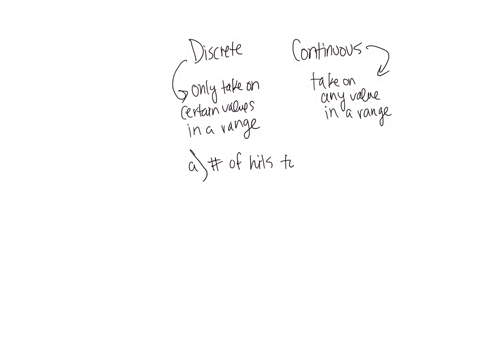 Discrete Continuous
only take on
certain values
in a range
take on
any value
in a range
a) # of hits to